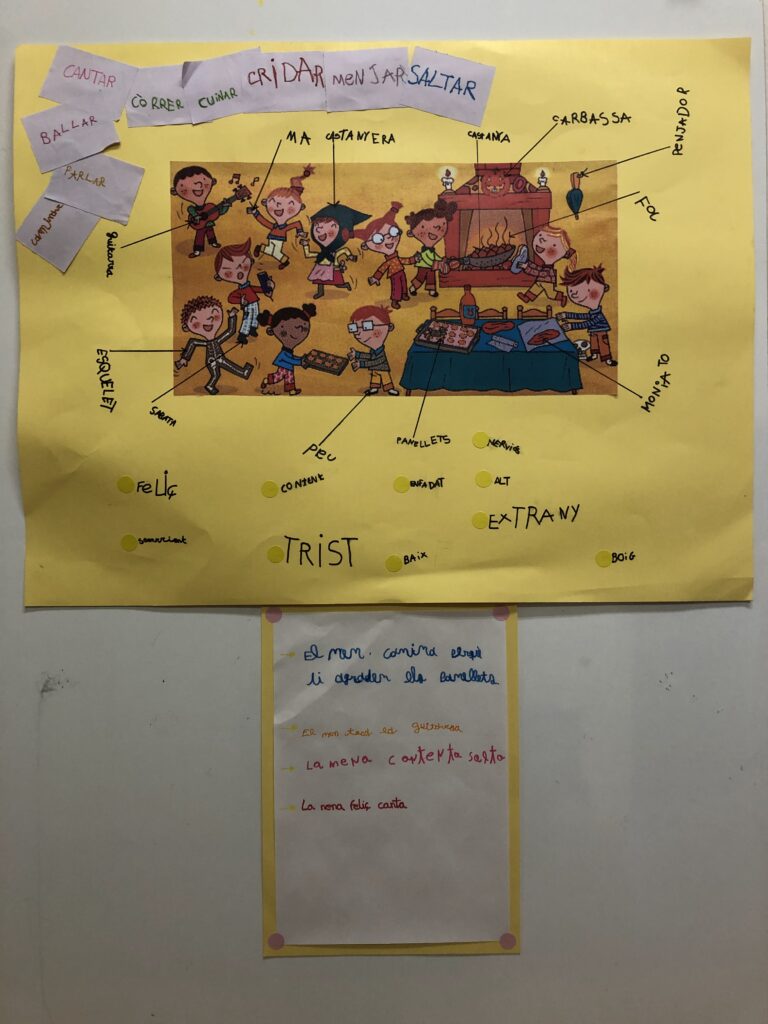 CANTAR
CÒRRER
CUINAR
CRIDAR
MENJAR
SALTAR
BALLAR
PARLAR
MA
CASTANYERA
CASTANYA
CARBASSA
PENJADOR
FOC
guitarra
ESQUELET
SABATA
PEU
PANELLETS
MONIATO
FELIÇ
CONTENT
ENFADAT
NERVIÓS
ALT
EXTRANY
somrient
TRIST
BAIX
BOIG
El nen camina
li agraden els panellets
El nen toca la guitarra
La nena contenta salta
La nena feliç canta